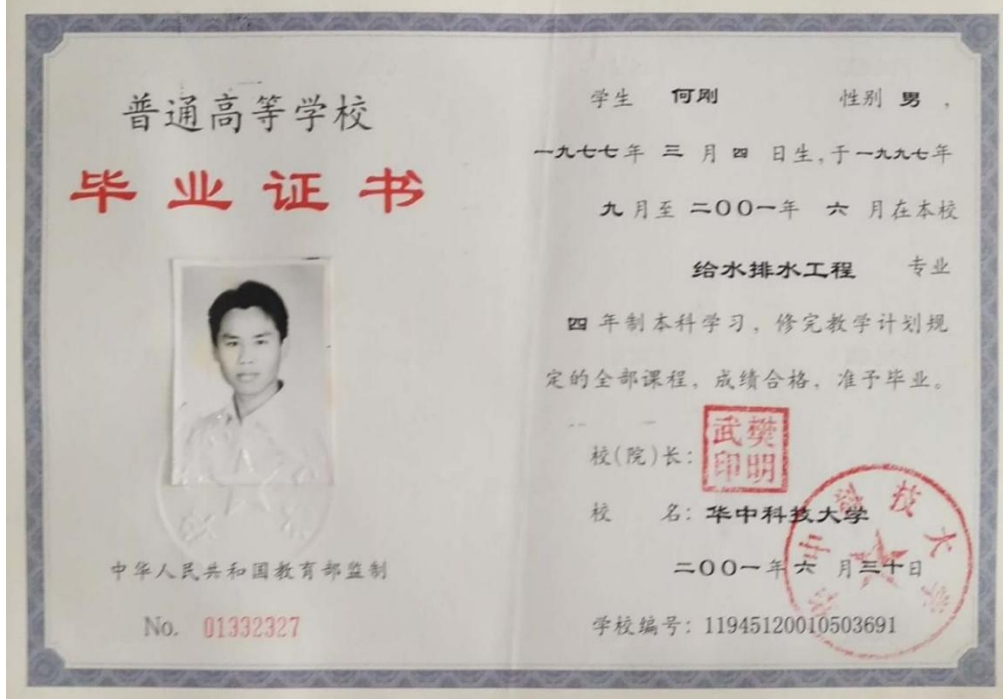 普通高等学校
毕业证书
中华人民共和国教育部监制
No. 01332327
学生 何刚 性别 男,
一九七七年 三 月 四 日生,于一九九七年
九 月至 二〇〇一年 六 月在本校
给水排水工程 专业
四 年制本科学习，修完教学计划规
定的全部课程，成绩合格，准予毕业。
校(院)长: 樊明武印
校 名: 华中科技大学
二〇〇一年 六 月三十日
学校编号: 11945120010503691
华中科技大学